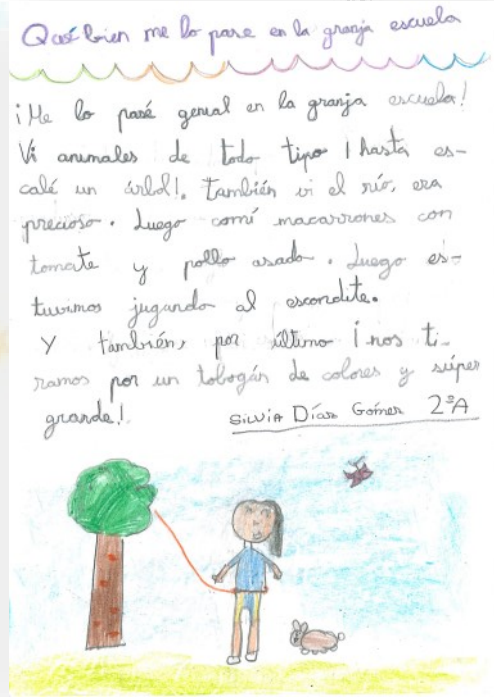 Qué bien me lo pase en la granja escuela
¡Me lo pasé genial en la granja escuela!
Vi animales de todo tipo ¡hasta es-
calé un árbol!. también vi el río, era
precioso. Luego comí macarrones con
tomate y pollo asado. Luego es-
tuvimos jugando al escondite.
Y también, por último ¡nos ti-
ramos por un tobogán de colores y súper
grande!.
Silvia Díaz Gómez 2ºA